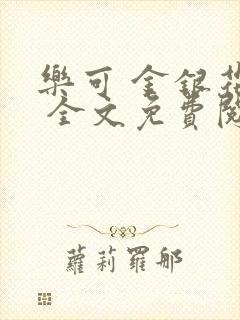 樂可 金銀花
全文免費閱
蘿莉羅邪